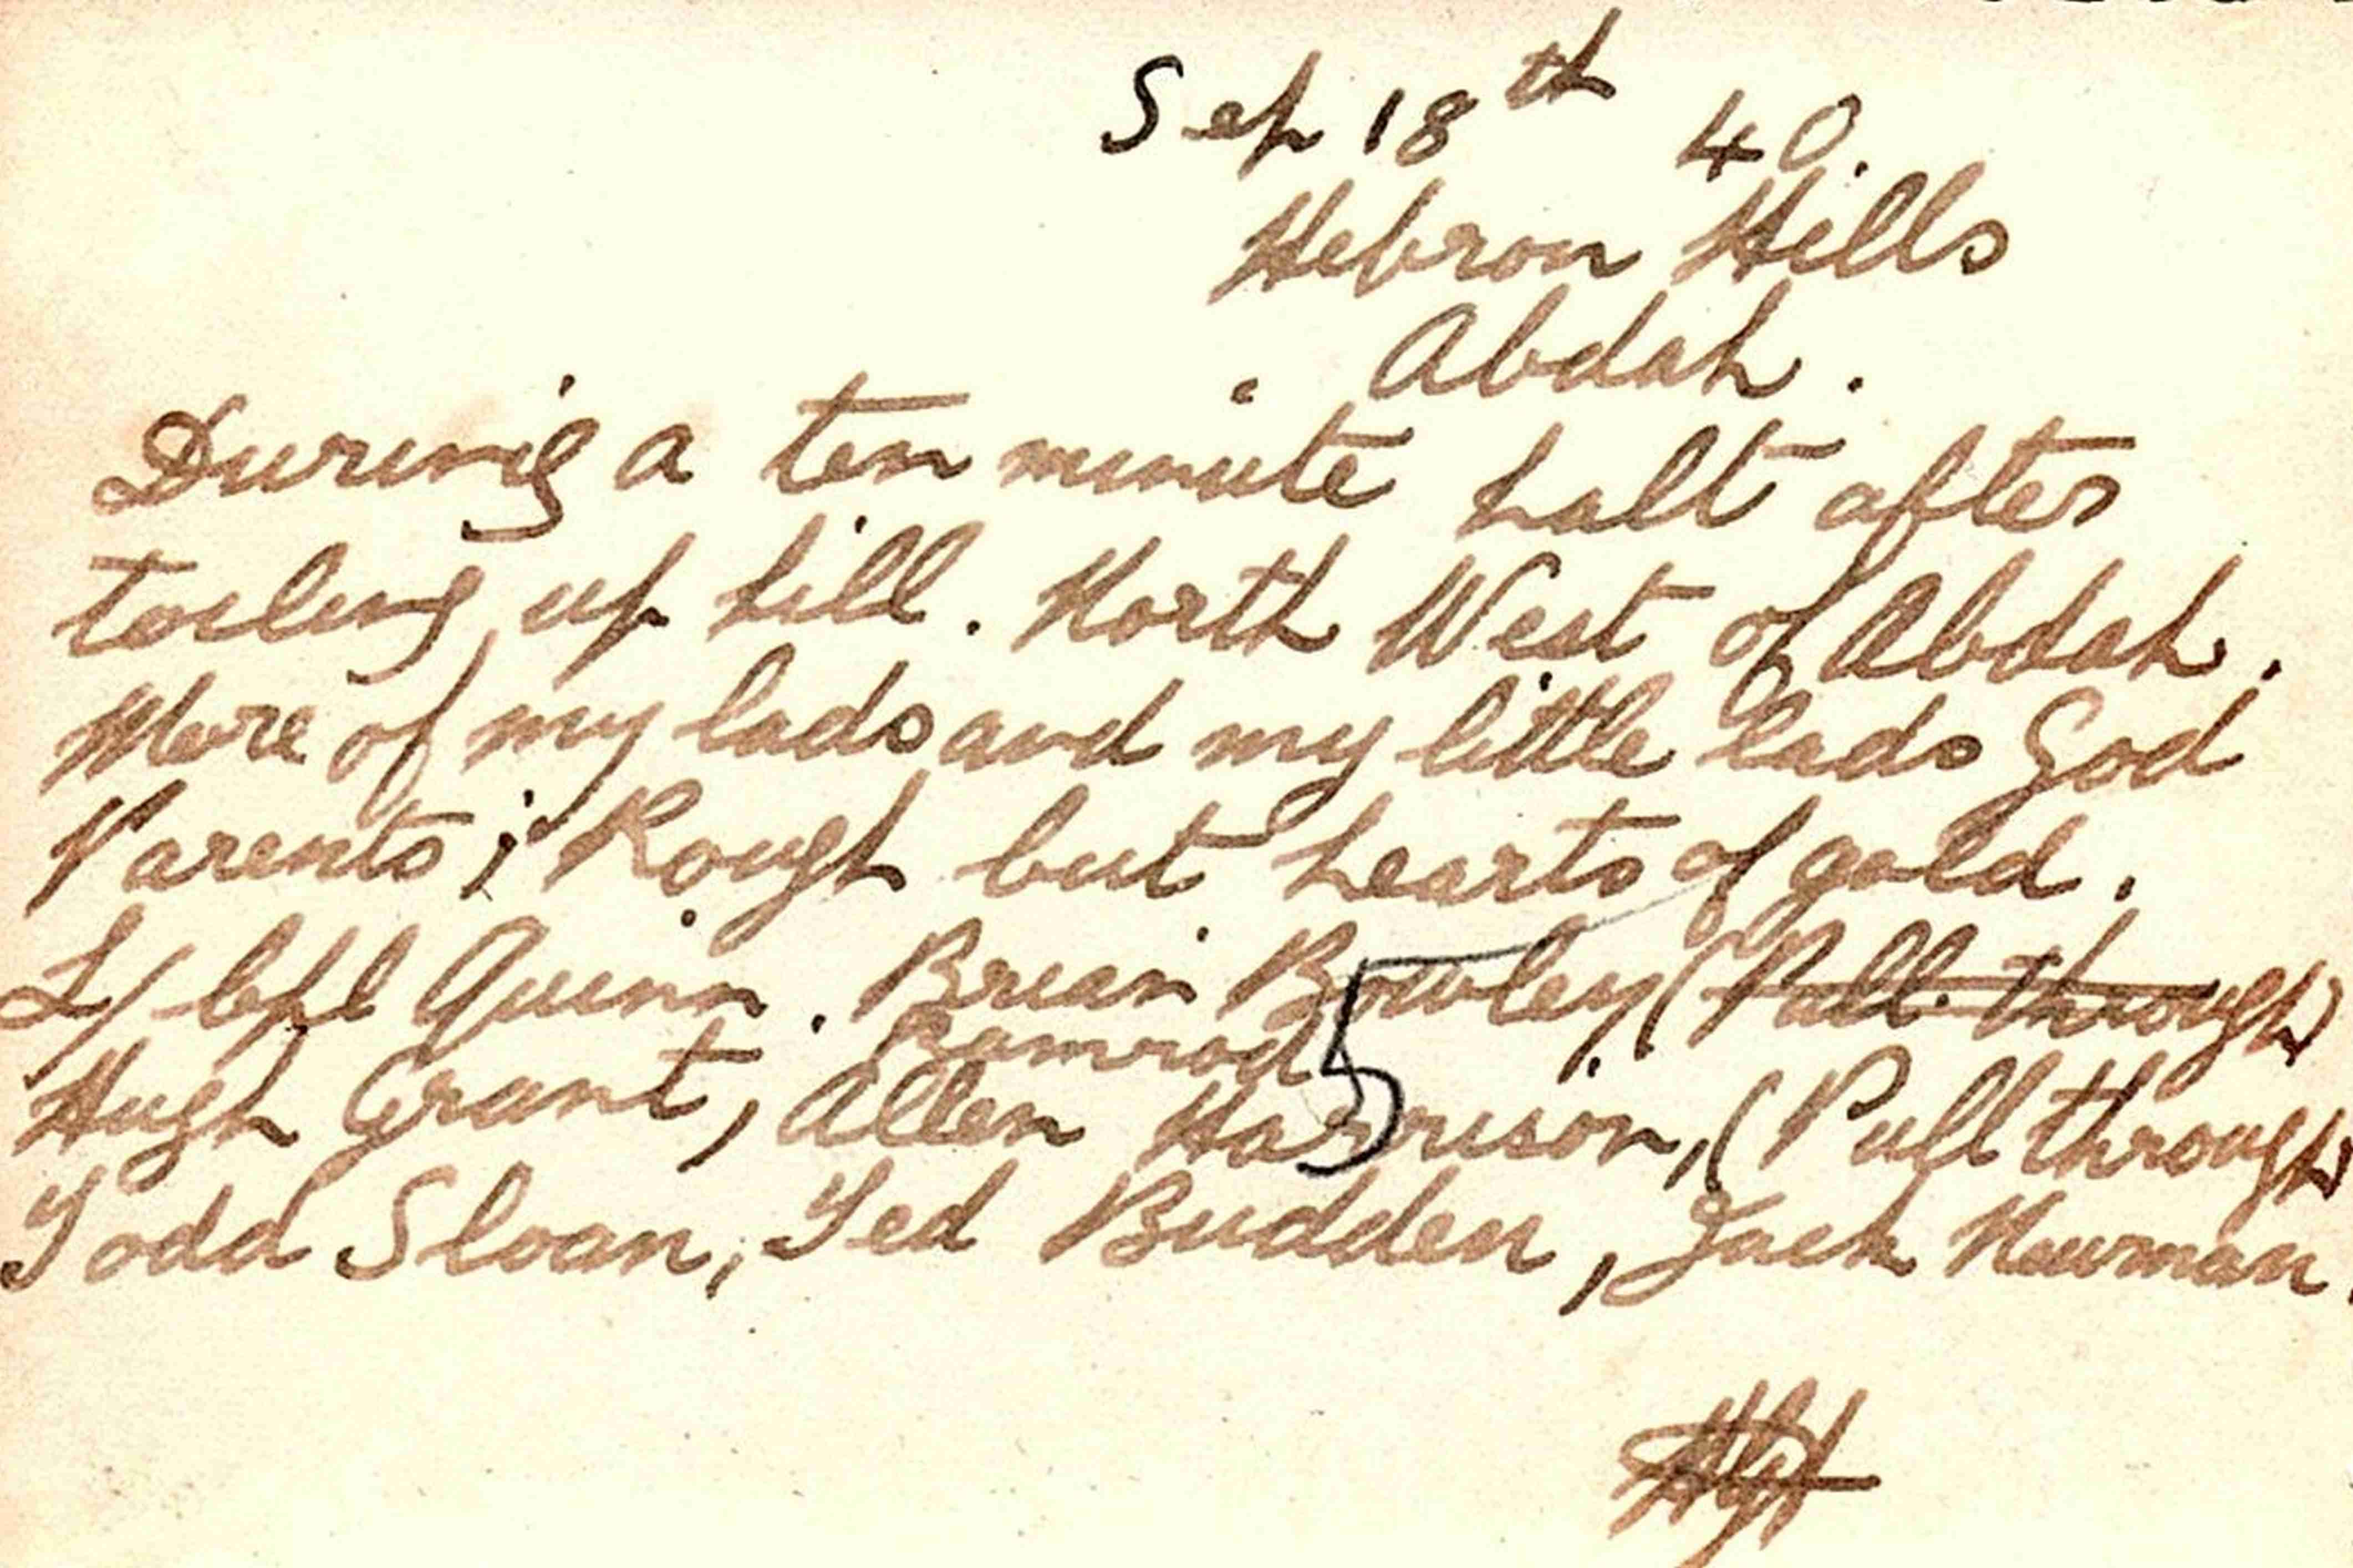 Sep 18th 40.
Hebron Hills
Abdah.
During a ten minute halt after
toiling up hill. North West of Abdah.
More of my lads and my little lads God
Parents; Rough but hearts of gold.
L/Cpl Quinn. Brian Bowley (Pull through)
Ramrod 5
Hugh Grant, Allen Harrison, (Pull through)
Todd Sloan, Ted Budden, Jack Newman.